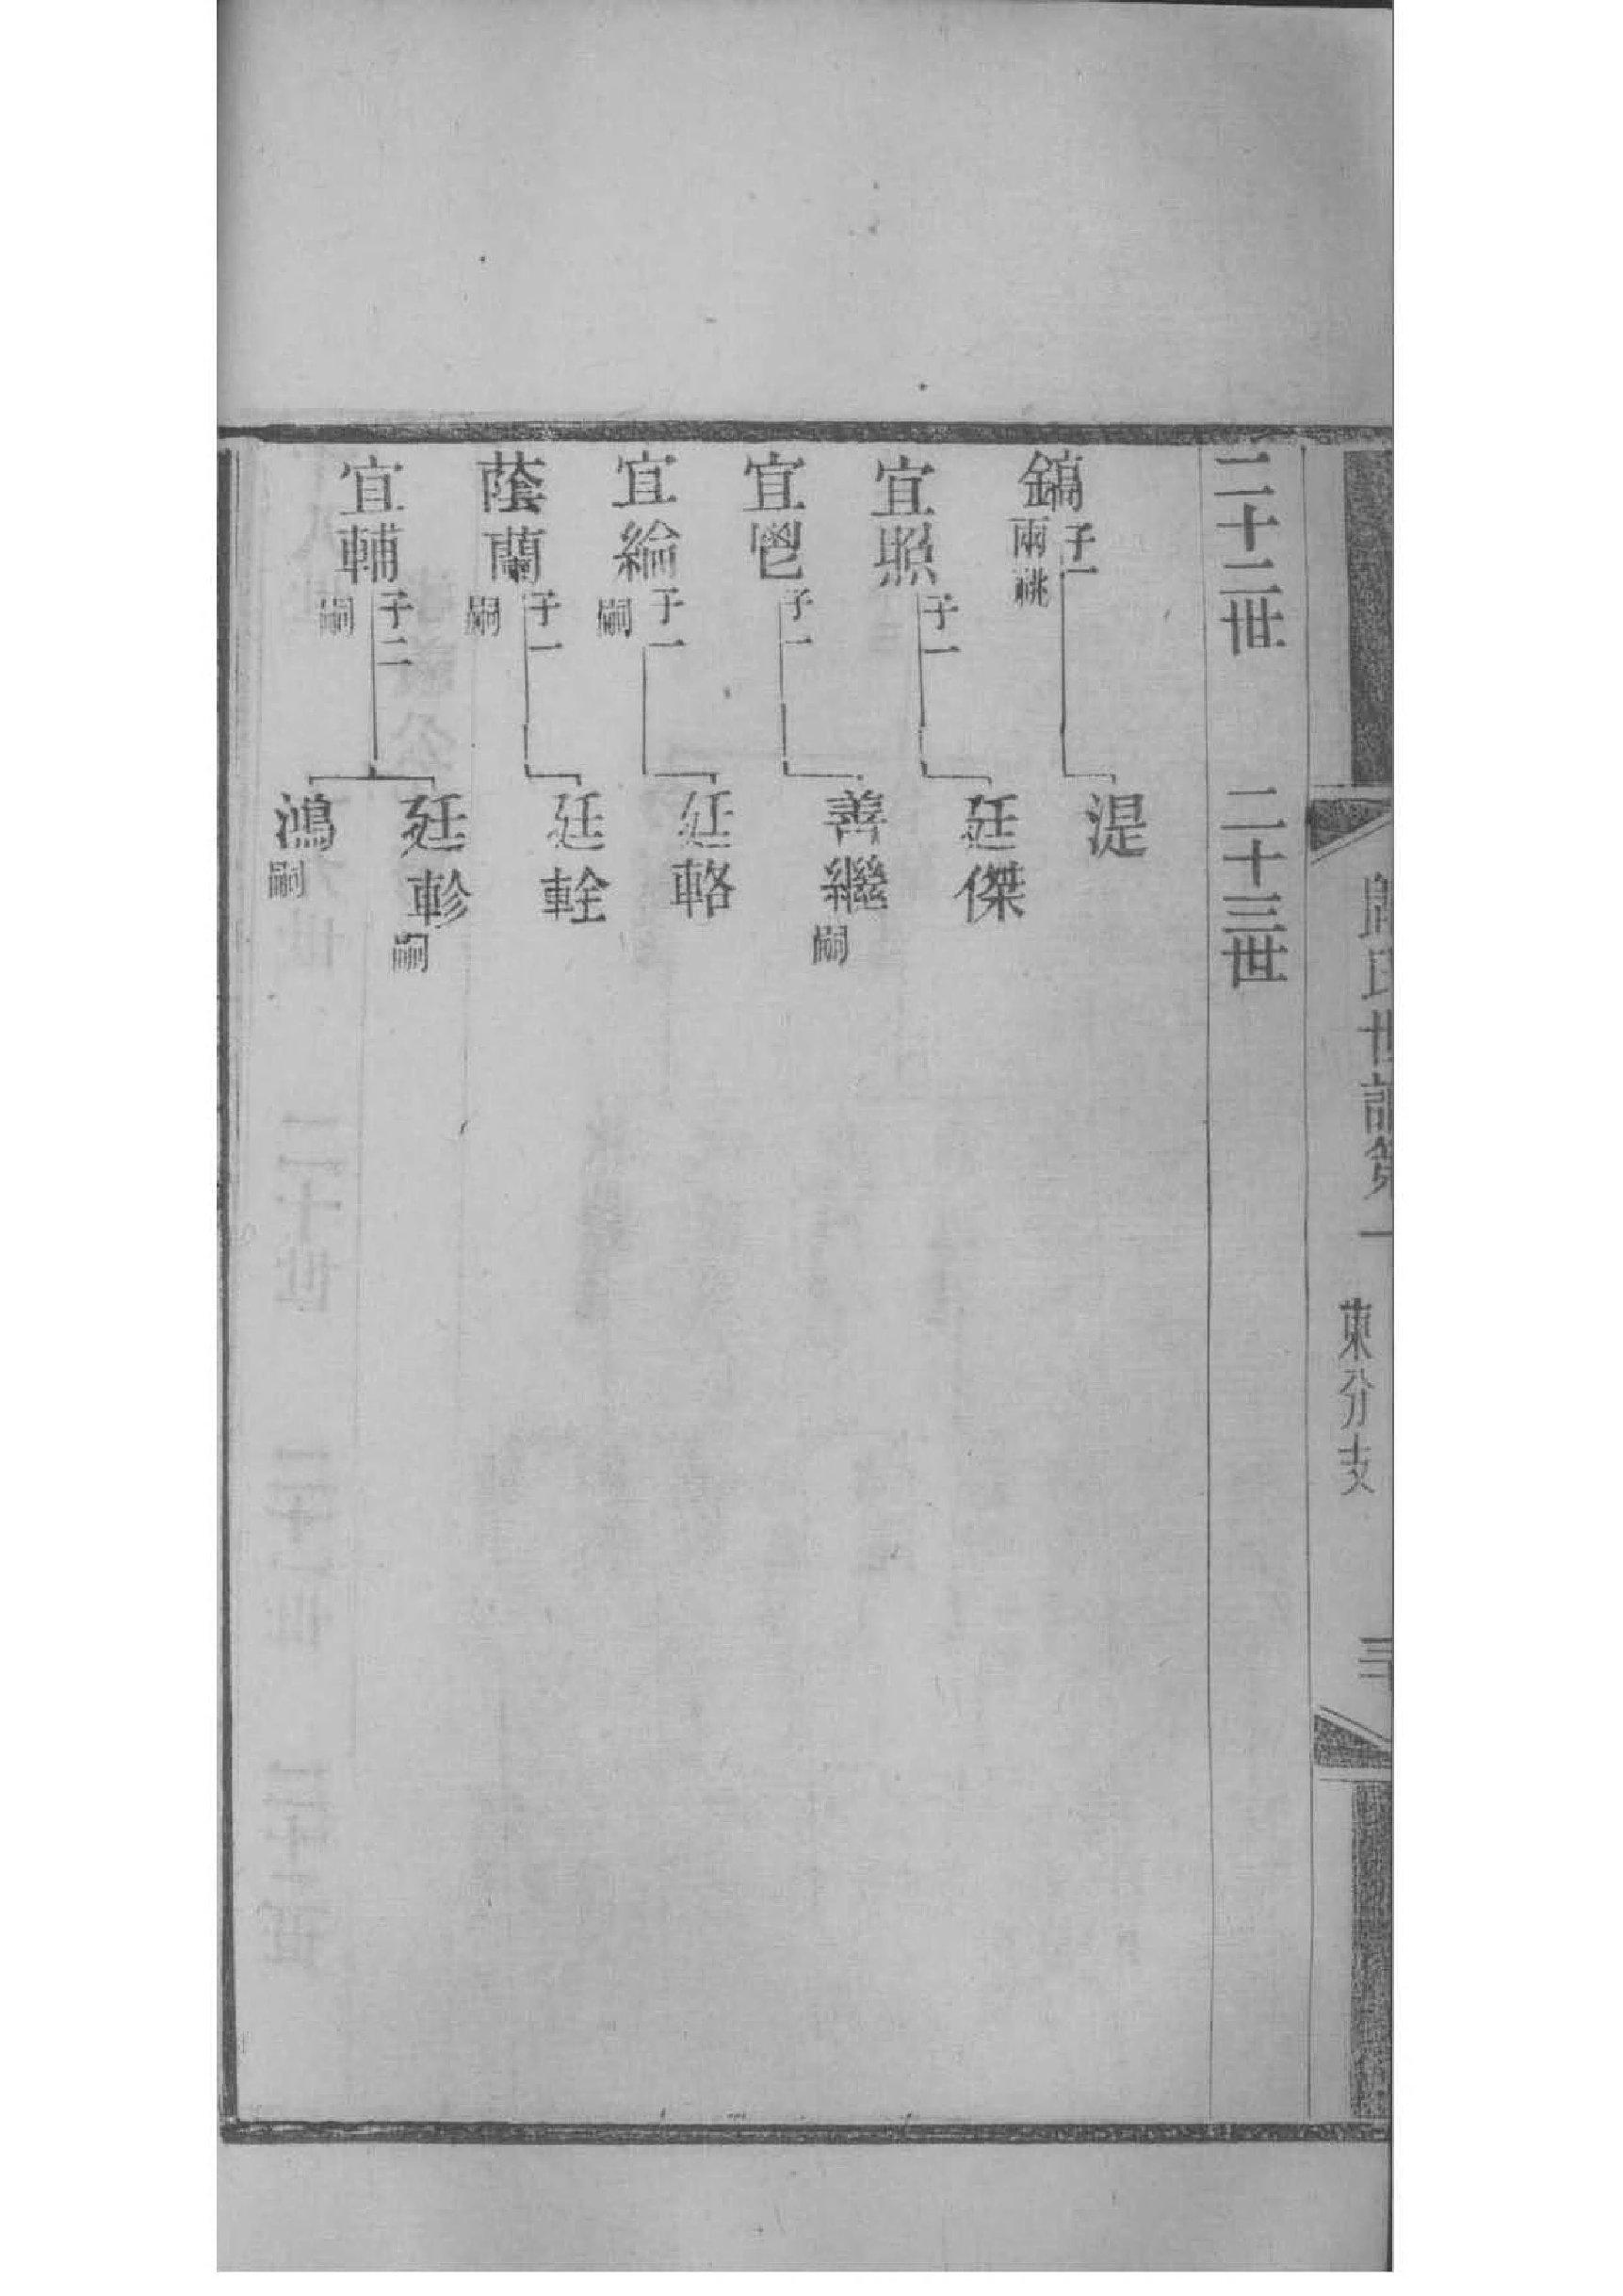 歸氏世譜第一
東分支
二十二世
二十三世
鎬
子一
兩祧
湜
宜照
子一
廷傑
宜鬯
子一
善繼
嗣
宜綸
子一
嗣
廷輅
蔭蘭
子一
嗣
廷輇
宜輔
子二
嗣
廷軫
嗣
鴻
嗣